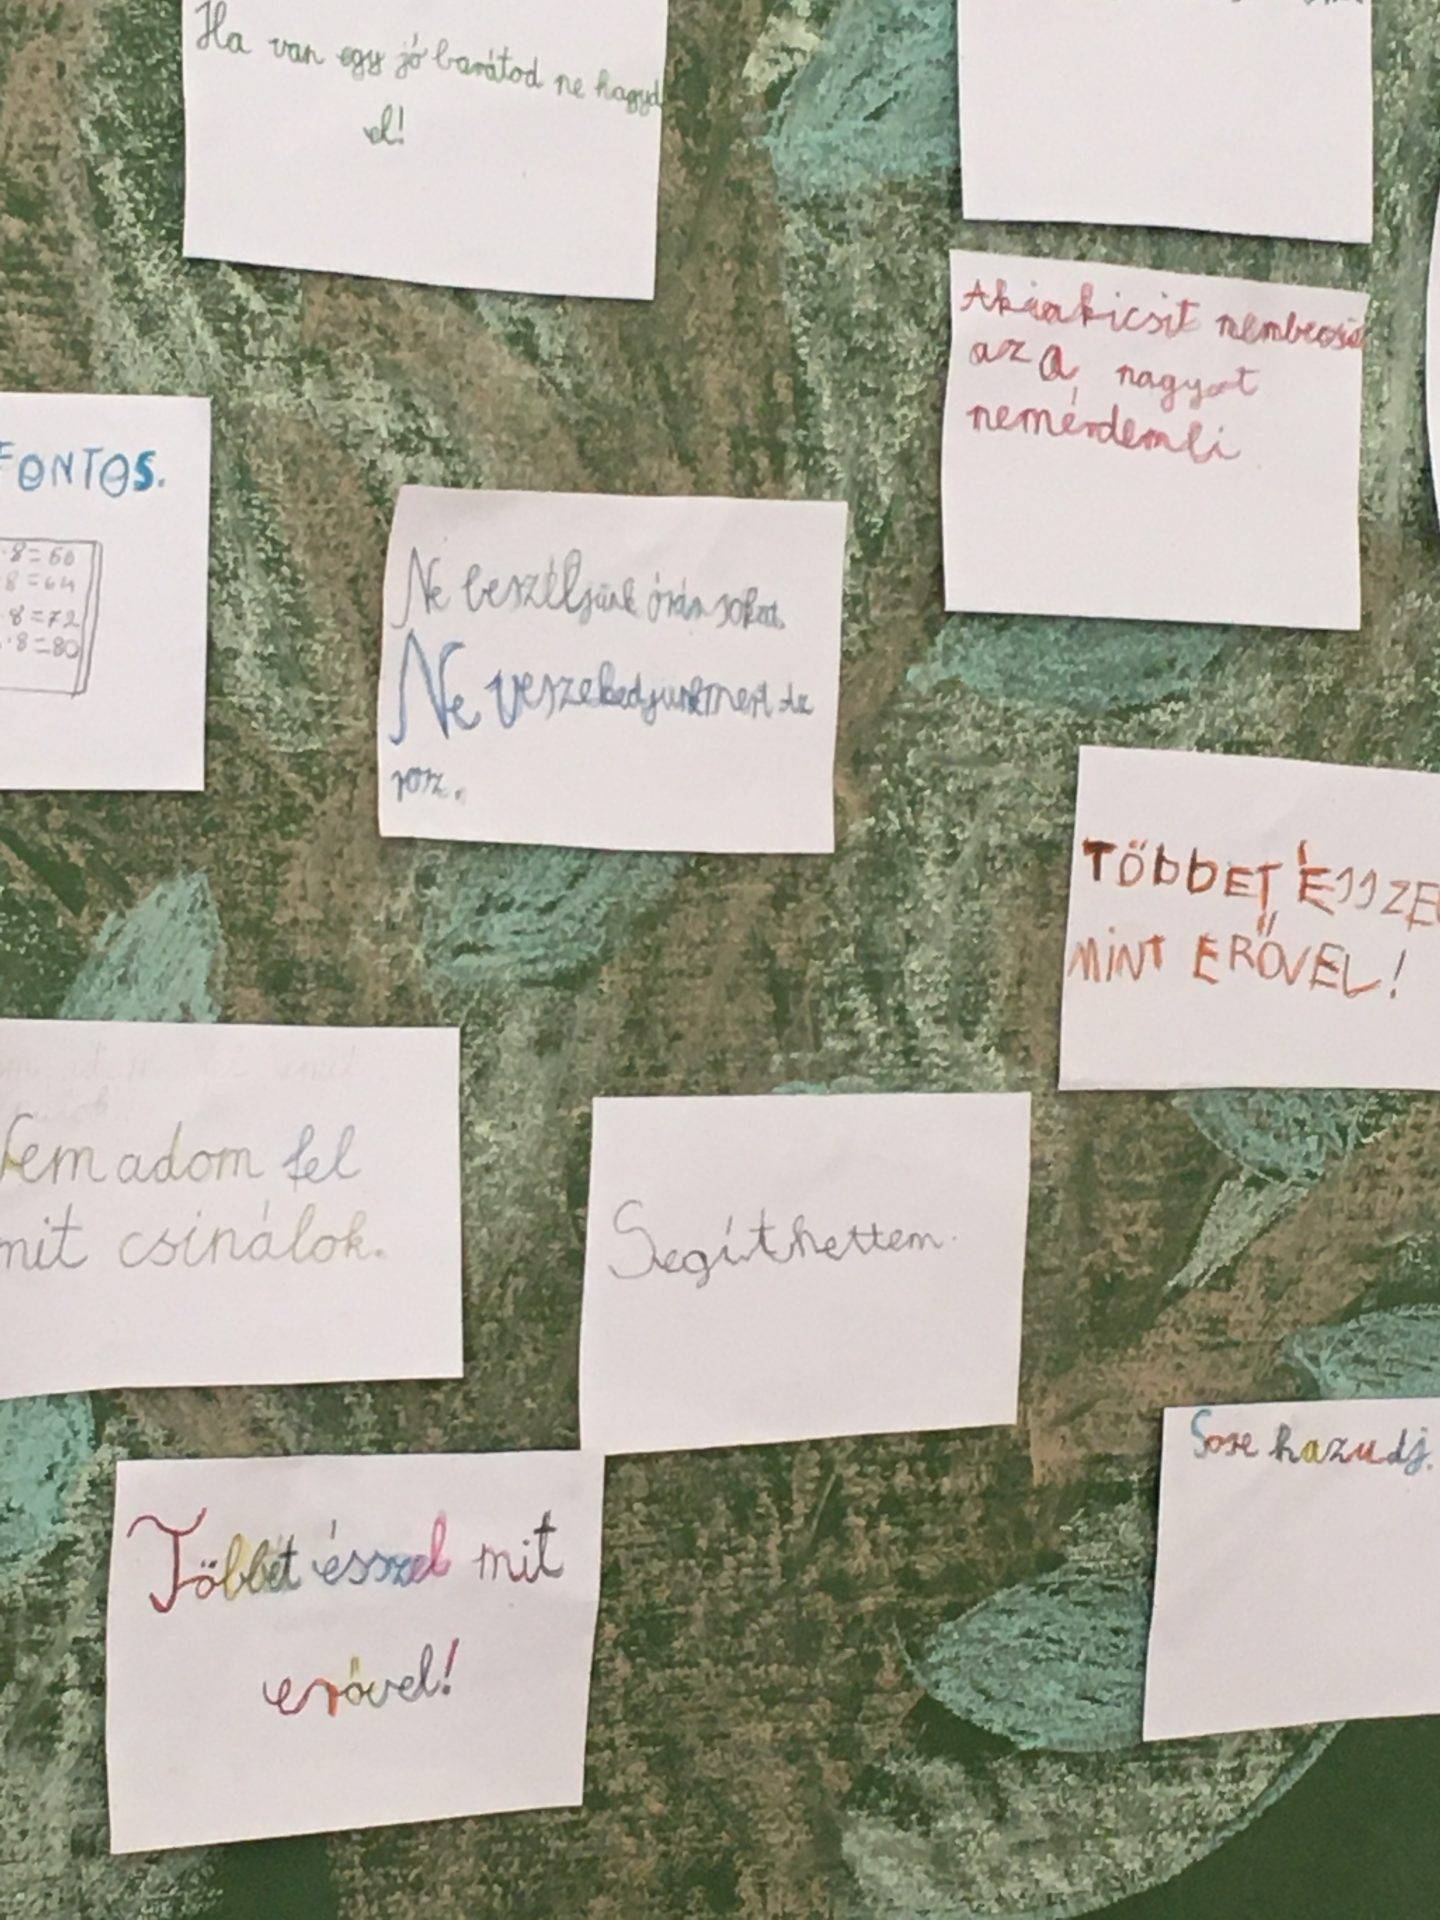 Ha van egy jó barátod ne hagyd
el!
Akiakicsit
az a nagyot
nemérdemli
FONTOS.
8=64
8=72
8=80
Ne beszéljünk órán sokat.
Ne veszekedjünkmert az
rossz.
TÖbbET ÉSSZEL
MINT ERŐVEL!
Nem adom fel
mit csinálok.
Segíthettem.
Sose hazudj.
Többet ésszel mit
erővel!